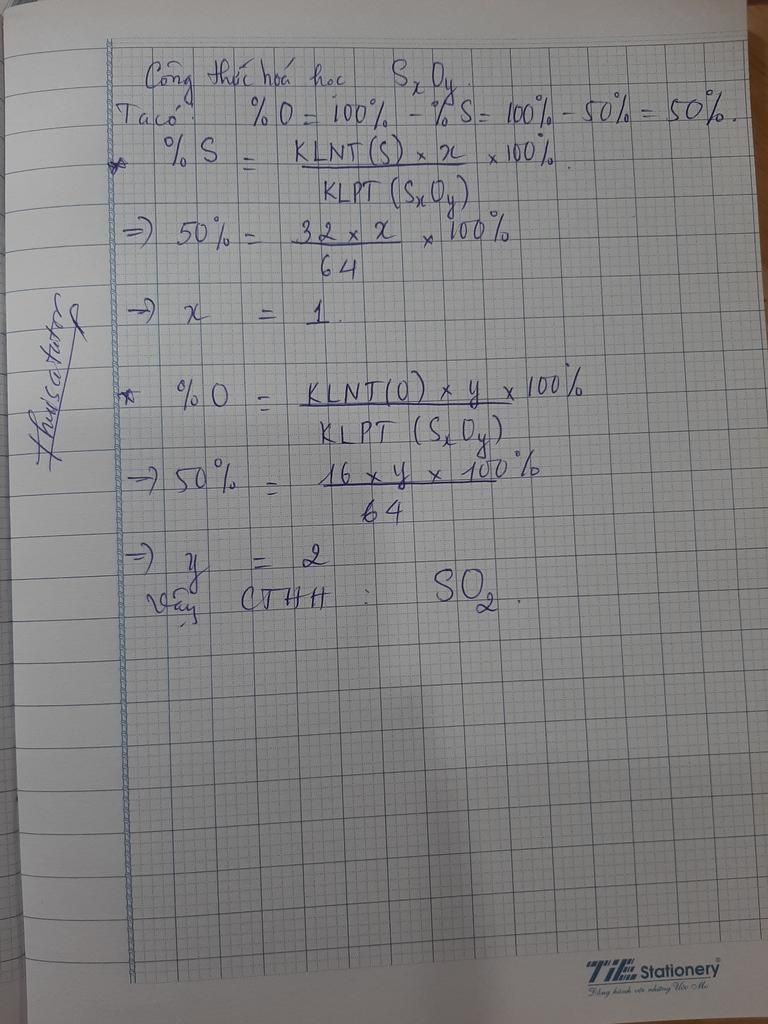 Công thức hoá học SxOy.
Ta có: %O = 100% - %S = 100% - 50% = 50%.
* %S = KLNT(S) × x / KLPT (SxOy) × 100%.
=> 50% = 32 × x / 64 × 100%
=> x = 1.
* %O = KLNT(O) × y × 100% / KLPT (SxOy)
=> 50% = 16 × y × 100% / 64
=> y = 2
Vậy CTHH : SO2.
TiE Stationery
Đồng hành với những Ước Mơ